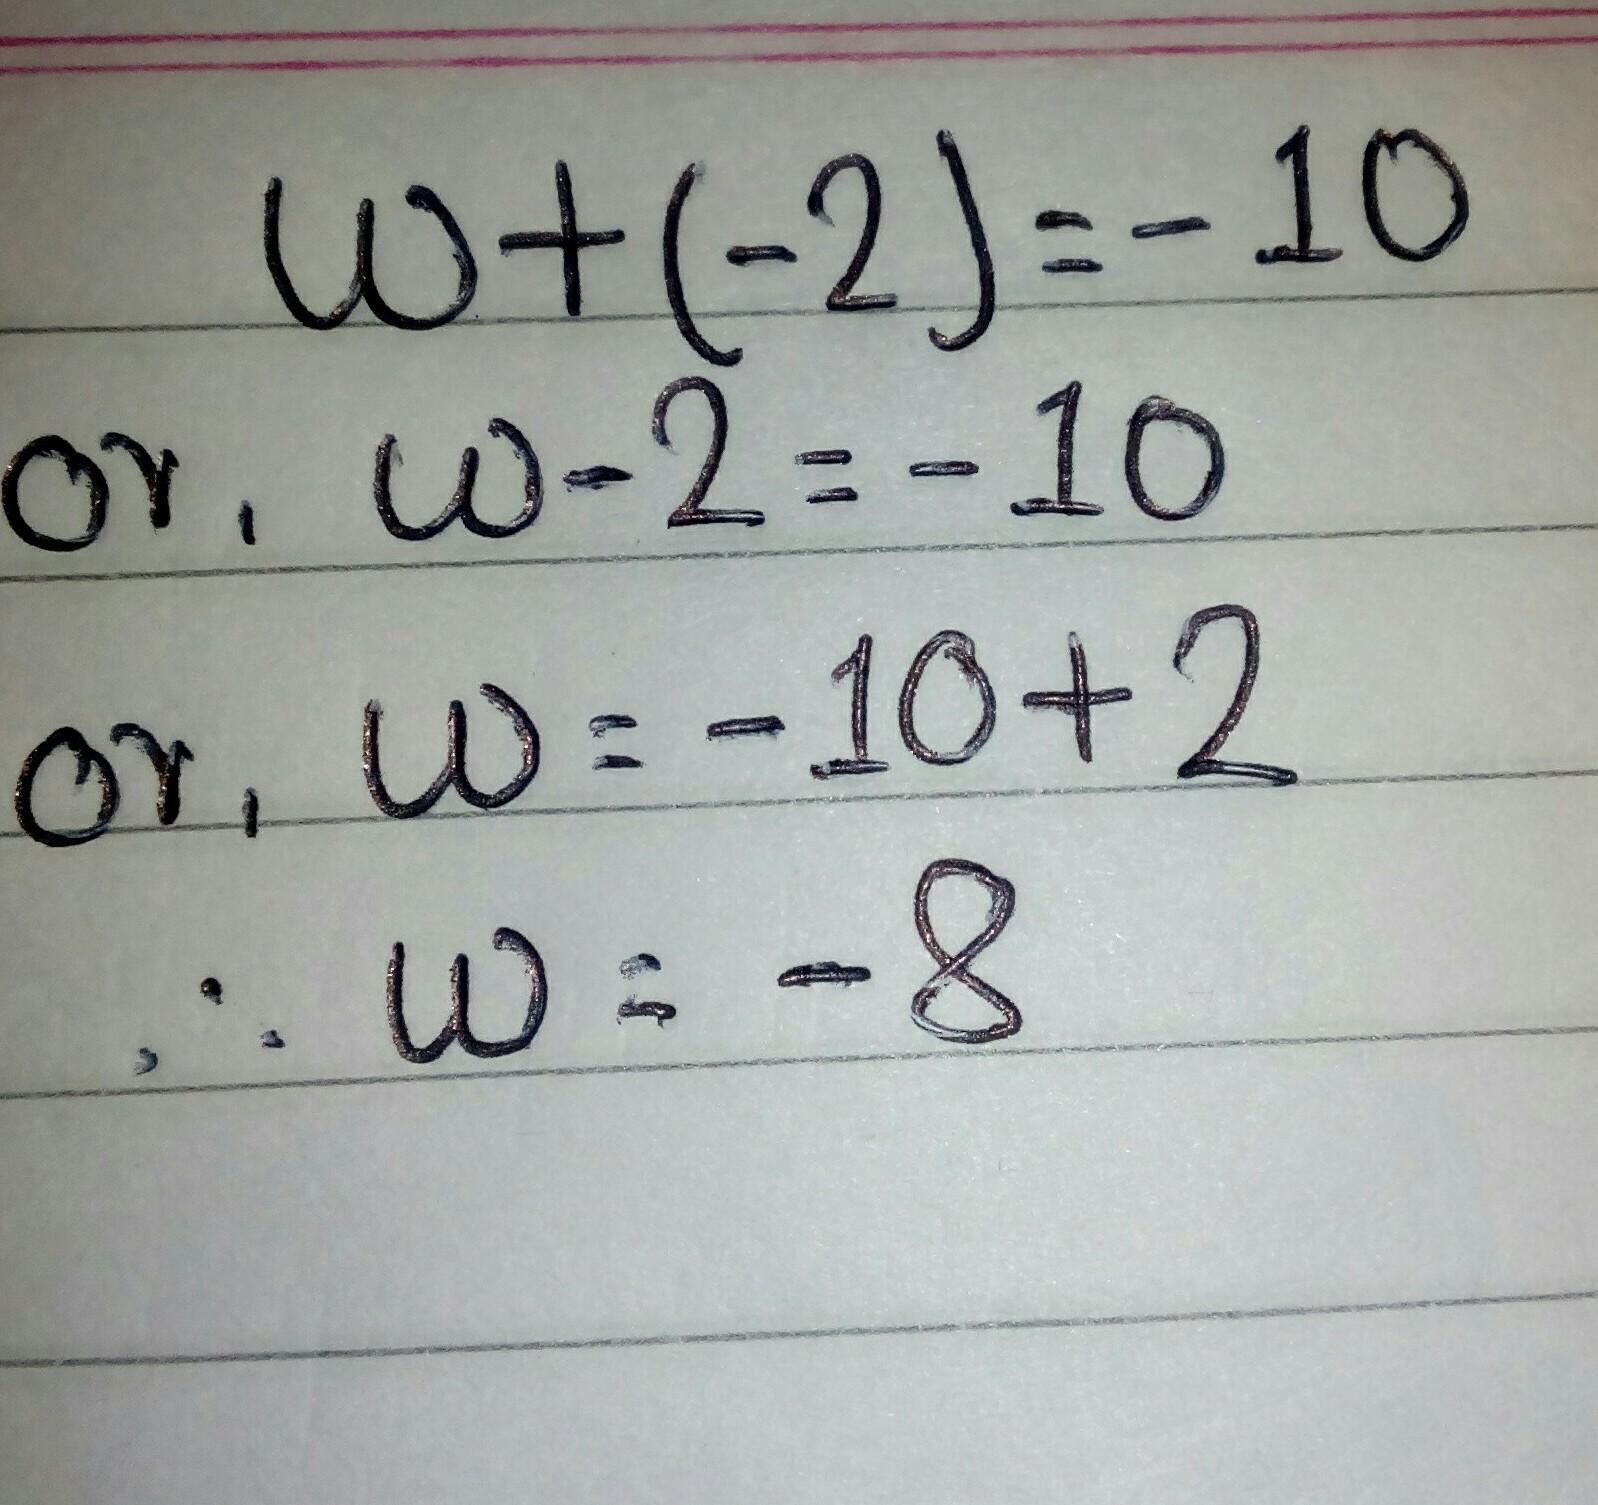 w+(-2)=-10
or, w-2=-10
or, w=-10+2
∴ w=-8